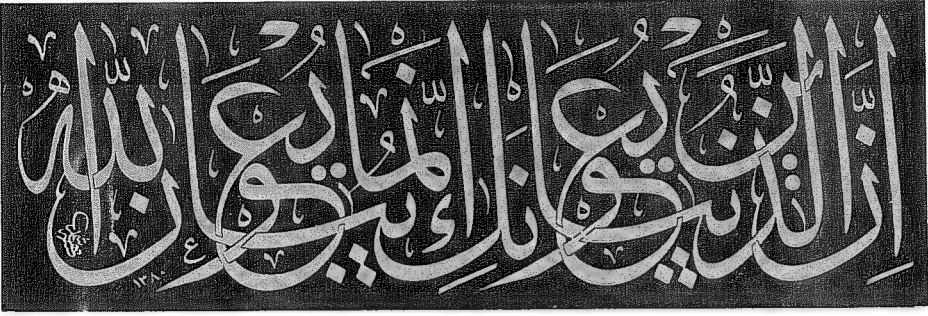 إن الذين يبايعونك إنما يبايعون الله
١٣٨٠